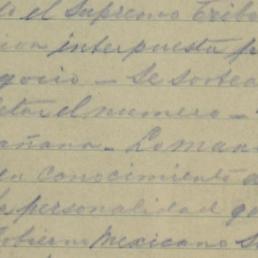 to el Supremo Tribu
interpuesta p
gocio - Se sortea
el numero -
añana - Lo mani
en conocimiento a
a personalidad q
obierno Mexicano S